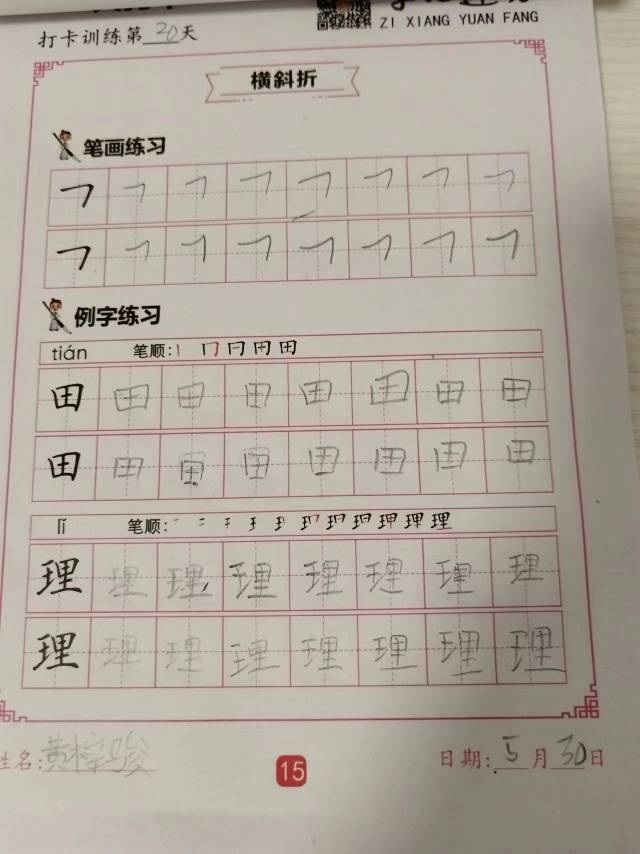 ZI XIANG YUAN FANG
打卡训练第20天
横斜折
笔画练习
㇇ ㇇ ㇇ ㇇ ㇇ ㇇ ㇇ ㇇
㇇ ㇇ ㇇ ㇇ ㇇ ㇇ ㇇ ㇇
例字练习
tián 笔顺: 丨 冂 日 田 田
田 田 田 田 田 田 田 田
田 田 田 田 田 田 田 田
lǐ 笔顺:
理 理 理 理 理 理 理 理
理 理 理 理 理 理 理 理
姓名:黄梓骏
15
日期:5月30日